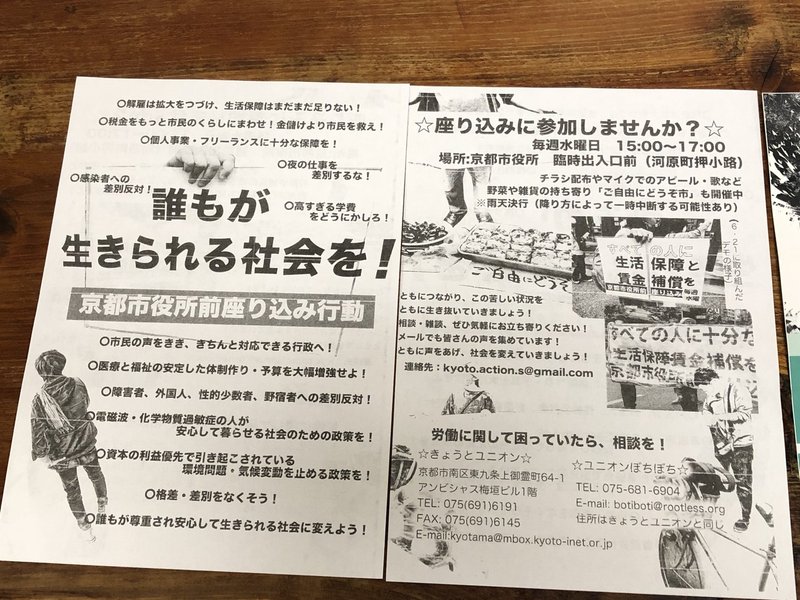 ○解雇は拡大をつづけ、生活保障はまだまだ足りない！
○税金をもっと市民のくらしにまわせ！金儲けより市民を救え！
○個人事業・フリーランスに十分な保障を！
○夜の仕事を
差別するな！
○感染者への
差別反対！
○高すぎる学費
をどうにかしろ！
誰もが
生きられる社会を！
京都市役所前座り込み行動
○市民の声をきき、きちんと対応できる行政へ！
○医療と福祉の安定した体制作り・予算を大幅増強せよ！
○障害者、外国人、性的少数者、野宿者への差別反対！
○電磁波・化学物質過敏症の人が
安心して暮らせる社会のための政策を！
○資本の利益優先で引き起こされている
環境問題・気候変動を止める政策を！
○格差・差別をなくそう！
○誰もが尊重され安心して生きられる社会に変えよう！
☆座り込みに参加しませんか？☆
毎週水曜日 15:00〜17:00
場所:京都市役所 臨時出入口前（河原町押小路）
チラシ配布やマイクでのアピール・歌など
野菜や雑貨の持ち寄り「ご自由にどうぞ市」も開催中
※雨天決行（降り方によって一時中断する可能性あり）
（6・21に取り組んだ
デモの様子）
ご自由にどうぞ
すべての人に
生活保障と
賃金補償を
京都市役所前座り込み
毎週
水曜
ともにつながり、この苦しい状況を
ともに生き抜いていきましょう！
相談・雑談、ぜひ気軽にお立ち寄りください！
メールでも皆さんの声を集めています！
ともに声をあげ、社会を変えていきましょう！
連絡先：kyoto.action.s@gmail.com
すべての人に十分な
生活保障賃金補償を
京都市役所前
労働に関して困っていたら、相談を！
☆きょうとユニオン☆
京都市南区東九条上御霊町64-1
アンビシャス梅垣ビル1階
TEL: 075(691)6191
FAX: 075(691)6145
E-mail:kyotama@mbox.kyoto-inet.or.jp
☆ユニオンぼちぼち☆
TEL: 075-681-6904
E-mail: botiboti@rootless.org
住所はきょうとユニオンと同じ